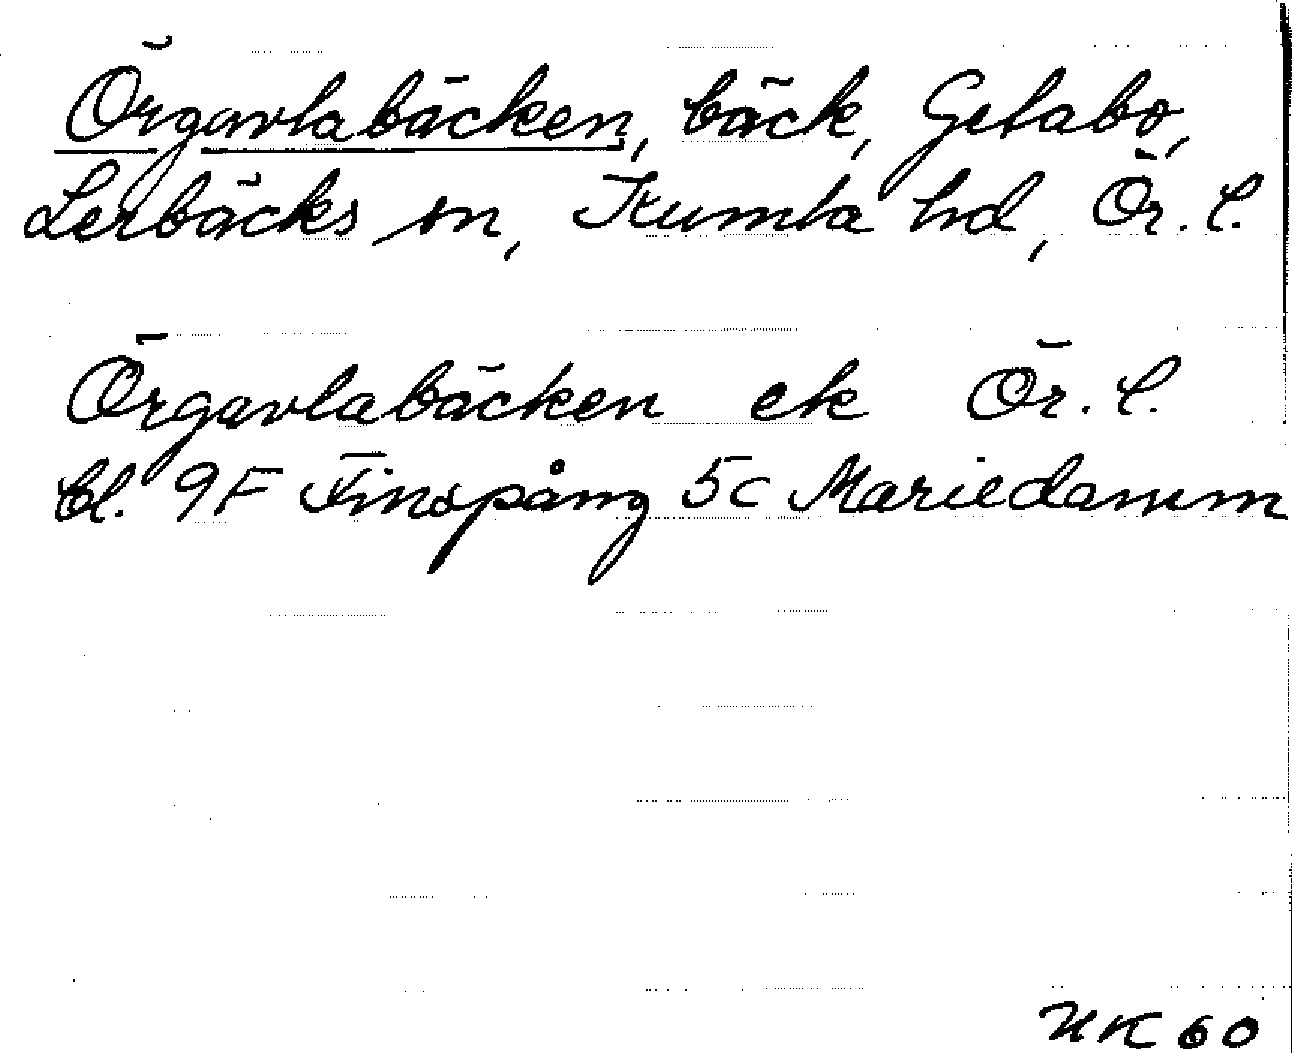 Örgavlabäcken, bäck, Getabo,
Lerbäcks sn, Kumla hd, Ör. l.
Örgavlabäcken ek Ör. l.
bl. 9F Finspång 5c Mariedamm
NK 60